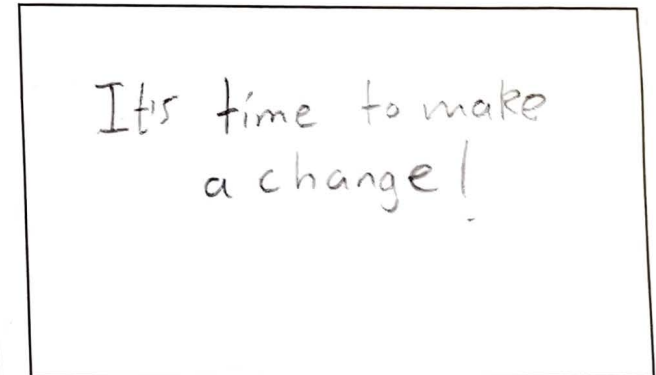 It's time to make
a change!